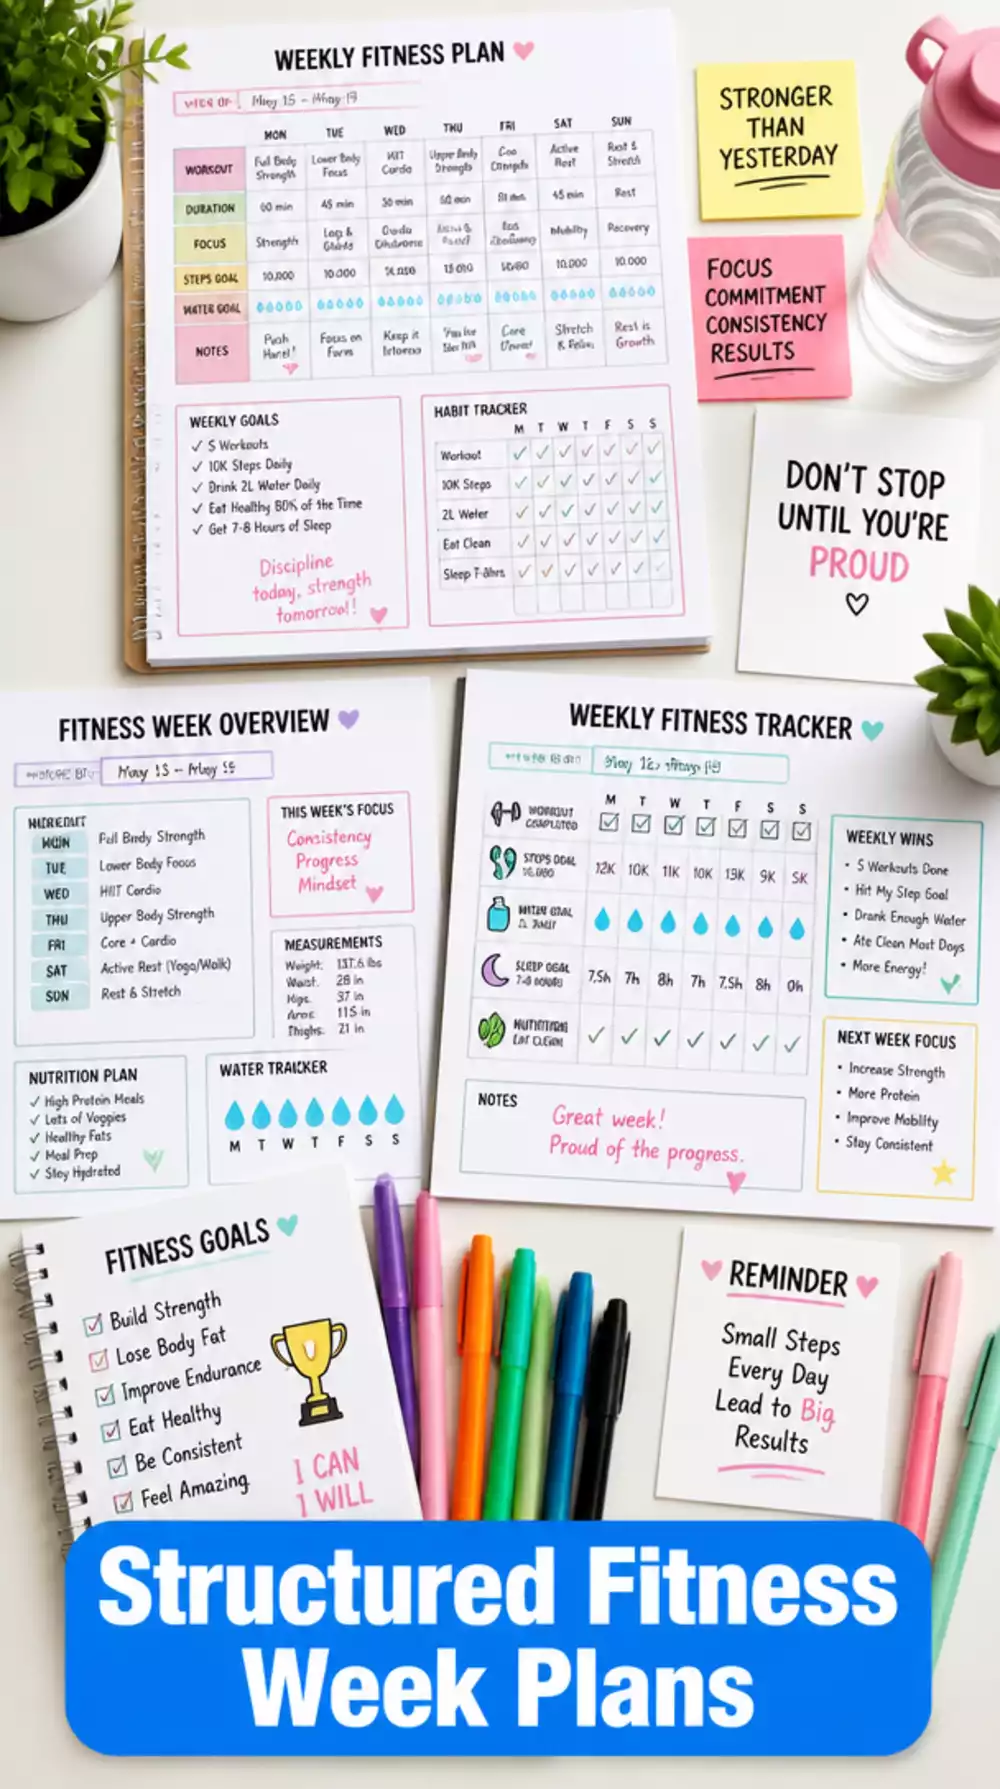 WEEKLY FITNESS PLAN
MON TUE WED THU FRI SAT SUN
WORKOUT
Full Body Strength
Lower Body Focus
Upper Body Strength
Active Rest
Rest &
DURATION
60 min 45 min 45 min Rest
FOCUS
Strength
Recovery
STEPS GOAL
10,000 10,000 10,000 10,000
WATER GOAL
NOTES
Push
Focus on
Keep it
Stretch
Rest is Growth
WEEKLY GOALS
✓ 5 Workouts
✓ 10K Steps Daily
✓ Drink 2L Water Daily
✓ Eat Healthy 80% of the Time
✓ Get 7-8 Hours of Sleep
Discipline
today, strength
tomorrow!
HABIT TRACKER
M T W T F S S
Workout
10K Steps
2L Water
Eat Clean
Sleep
STRONGER
THAN
YESTERDAY
FOCUS
COMMITMENT
CONSISTENCY
RESULTS
DON'T STOP
UNTIL YOU'RE
PROUD
FITNESS WEEK OVERVIEW
MON Full Body Strength
TUE Lower Body Focus
WED HIIT Cardio
THU Upper Body Strength
FRI Core + Cardio
SAT Active Rest (Yoga/Walk)
SUN Rest & Stretch
THIS WEEK'S FOCUS
Consistency
Progress
Mindset
MEASUREMENTS
Weight: 137.6 lbs
Waist: 28 in
Hips: 37 in
Thighs: 21 in
NUTRITION PLAN
✓ High Protein Meals
✓ Lots of Veggies
✓ Healthy Fats
✓ Meal Prep
✓ Stay Hydrated
WATER TRACKER
M T W T F S S
WEEKLY FITNESS TRACKER
M T W T F S S
WORKOUT COMPLETED
STEPS GOAL
12K 10K 11K 10K 13K 9K 5K
SLEEP GOAL
7.5h 7h 8h 7h 7.5h 8h 0h
NOTES
Great week!
Proud of the progress.
WEEKLY WINS
• 5 Workouts Done
• Hit My Step Goal
• Drank Enough Water
• Ate Clean Most Days
• More Energy!
NEXT WEEK FOCUS
• Increase Strength
• More Protein
• Improve Mobility
• Stay Consistent
FITNESS GOALS
Build Strength
Lose Body Fat
Improve Endurance
Eat Healthy
Be Consistent
Feel Amazing
I CAN
I WILL
REMINDER
Small Steps
Every Day
Lead to Big
Results
Structured Fitness
Week Plans